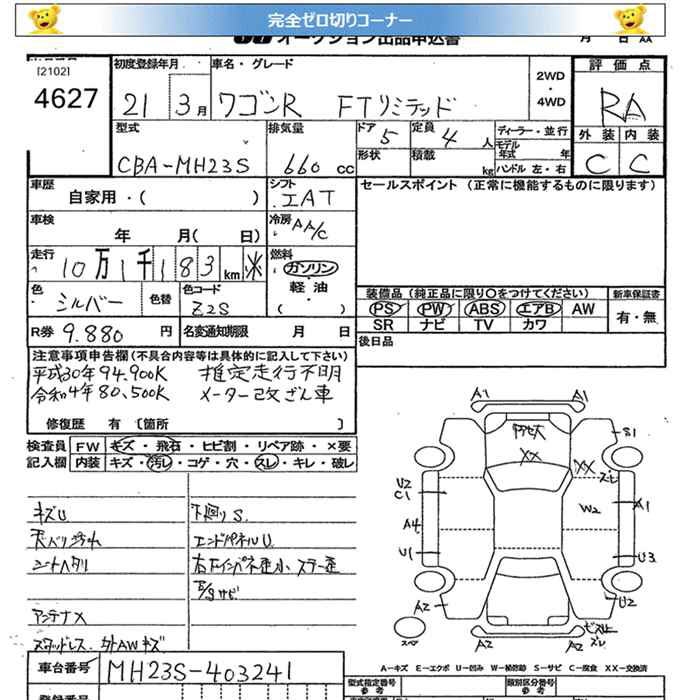 完全ゼロ切りコーナー
オークション出品申込書
[2102]
4627
初度登録年月
21 3月
車名・グレード
ワゴンR FTリミテッド
2WD
・
4WD
評価点
RA
外装 内装
C C
型式
CBA-MH23S
排気量
660 cc
ドア 5
形状
定員 4 人
積載 kg
ディーラー・並行
モデル年式 年
ハンドル 左・右
車歴
自家用・( )
シフト
IAT
セールスポイント (正常に機能するものに限ります)
車検
年 月( 日)
冷房
AA/C
走行
10万1千183km ※
燃料
ガソリン
軽油
( )
色
シルバー
色替
色コード
Z2S
装備品 (純正品に限り〇をつけてください)
PS PW ABS エアB AW
SR ナビ TV カワ
新車保証書
有・無
R券 9.880 円
名変通知期限 月 日
後日品
注意事項申告欄(不具合内容等は具体的に記入して下さい)
平成30年94,900K 推定走行不明
令和4年80,500K メーター改ざん車
修復歴 有 〔箇所 〕
検査員記入欄
FW キズ・飛石・ヒビ割・リペア跡・×要
内装 キズ・汚レ・コゲ・穴・スレ・キレ・破レ
キズU
天バリ汚れ
シートヘタリ
アンテナX
スタッドレス 外AWキズ
下廻りS
エンドパネルU
サビ
A1 A1
S1
XX
XX
U2
C1
W2
A1
A4
U1
U3
A2
U2
A2 A2
スペア
A=キズ E=エクボ U=凹み W=補修跡 S=サビ C=腐食 XX=交換済
車台番号
MH23S-403241
登録番号
型式指定番号
参考
類別区分番号
参考